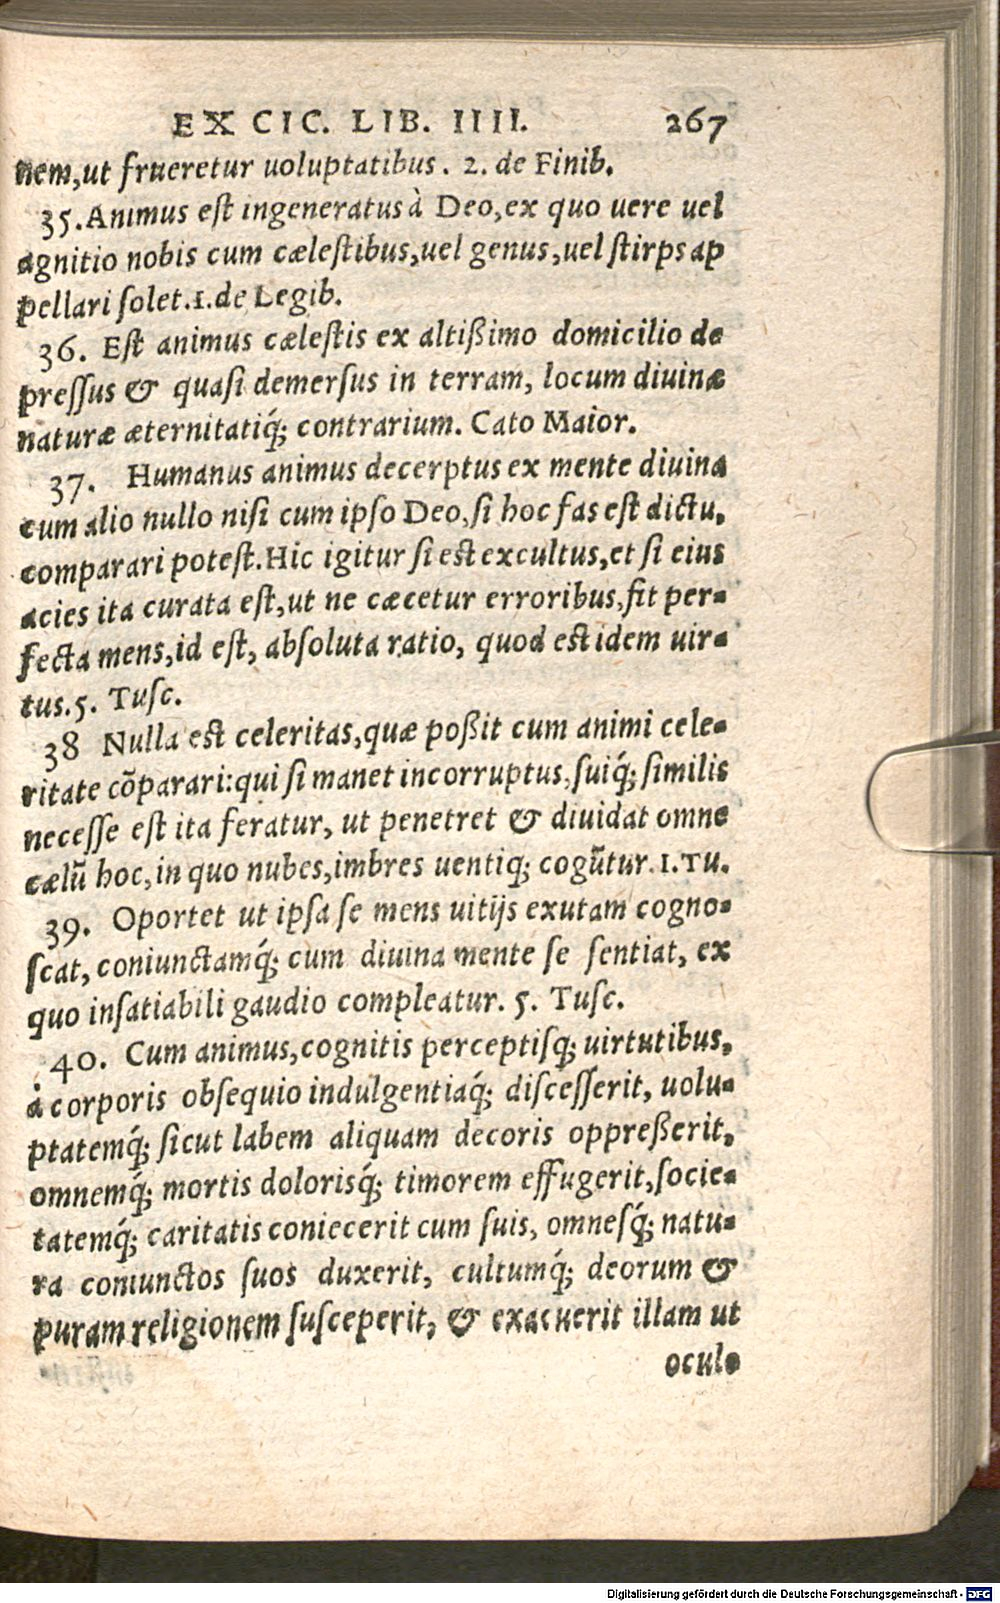 EX CIC. LIB. IIII. 267
nem, ut frueretur uoluptatibus. 2. de Finib.
35. Animus eſt ingeneratus à Deo, ex quo uere uel
agnitio nobis cum cæleſtibus, uel genus, uel ſtirps ap
pellari ſolet. 1. de Legib.
36. Eſt animus cæleſtis ex altißimo domicilio de
preſſus & quaſi demerſus in terram, locum diuinæ
naturæ æternitatiq́; contrarium. Cato Maior.
37. Humanus animus decerptus ex mente diuina
cum alio nullo niſi cum ipſo Deo, ſi hoc fas eſt dictu,
comparari poteſt. Hic igitur ſi est excultus, et ſi eius
acies ita curata eſt, ut ne cæcetur erroribus, fit per-
fecta mens, id eſt, abſoluta ratio, quod est idem uir-
tus. 5. Tuſc.
38 Nulla est celeritas, quæ poßit cum animi cele-
ritate cõparari: qui ſi manet incorruptus, ſuiq́; ſimilis
neceſſe eſt ita feratur, ut penetret & diuidat omne
cælũ hoc, in quo nubes, imbres uentiq; cogũtur. 1. Tu.
39. Oportet ut ipſa ſe mens uitijs exutam cogno-
ſcat, coniunctamq́; cum diuina mente ſe ſentiat, ex
quo inſatiabili gaudio compleatur. 5. Tuſc.
40. Cum animus, cognitis perceptiſq; uirtutibus,
à corporis obſequio indulgentiaq́; diſceſſerit, uolu-
ptatemq́; ſicut labem aliquam decoris oppreßerit,
omnemq́; mortis doloriſq́; timorem effugerit, ſocie-
tatemq́; caritatis coniecerit cum ſuis, omneſq́; natu-
ra coniunctos ſuos duxerit, cultumq́; deorum &
puram religionem ſuſceperit, & exacuerit illam ut
oculo
Digitalisierung gefördert durch die Deutsche Forschungsgemeinschaft - DFG